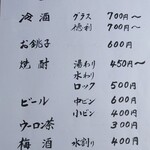 冷酒 グラス 700円〜
徳利 700円〜
お銚子 600円
焼酎 湯わり 450円〜
水わり
ロック 500円
ビール 中ビン 600円
小ビン 400円
ウーロン茶 300円
梅酒 水割り 400円